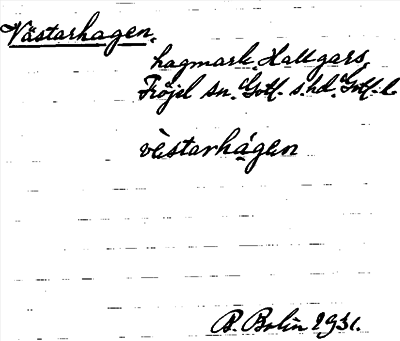 Västarhagen.
hagmark. Hallgars,
Fröjel sn. Gotl. s. hd. Gotl. l.
vèstarhágen
B. Bolin 1931.